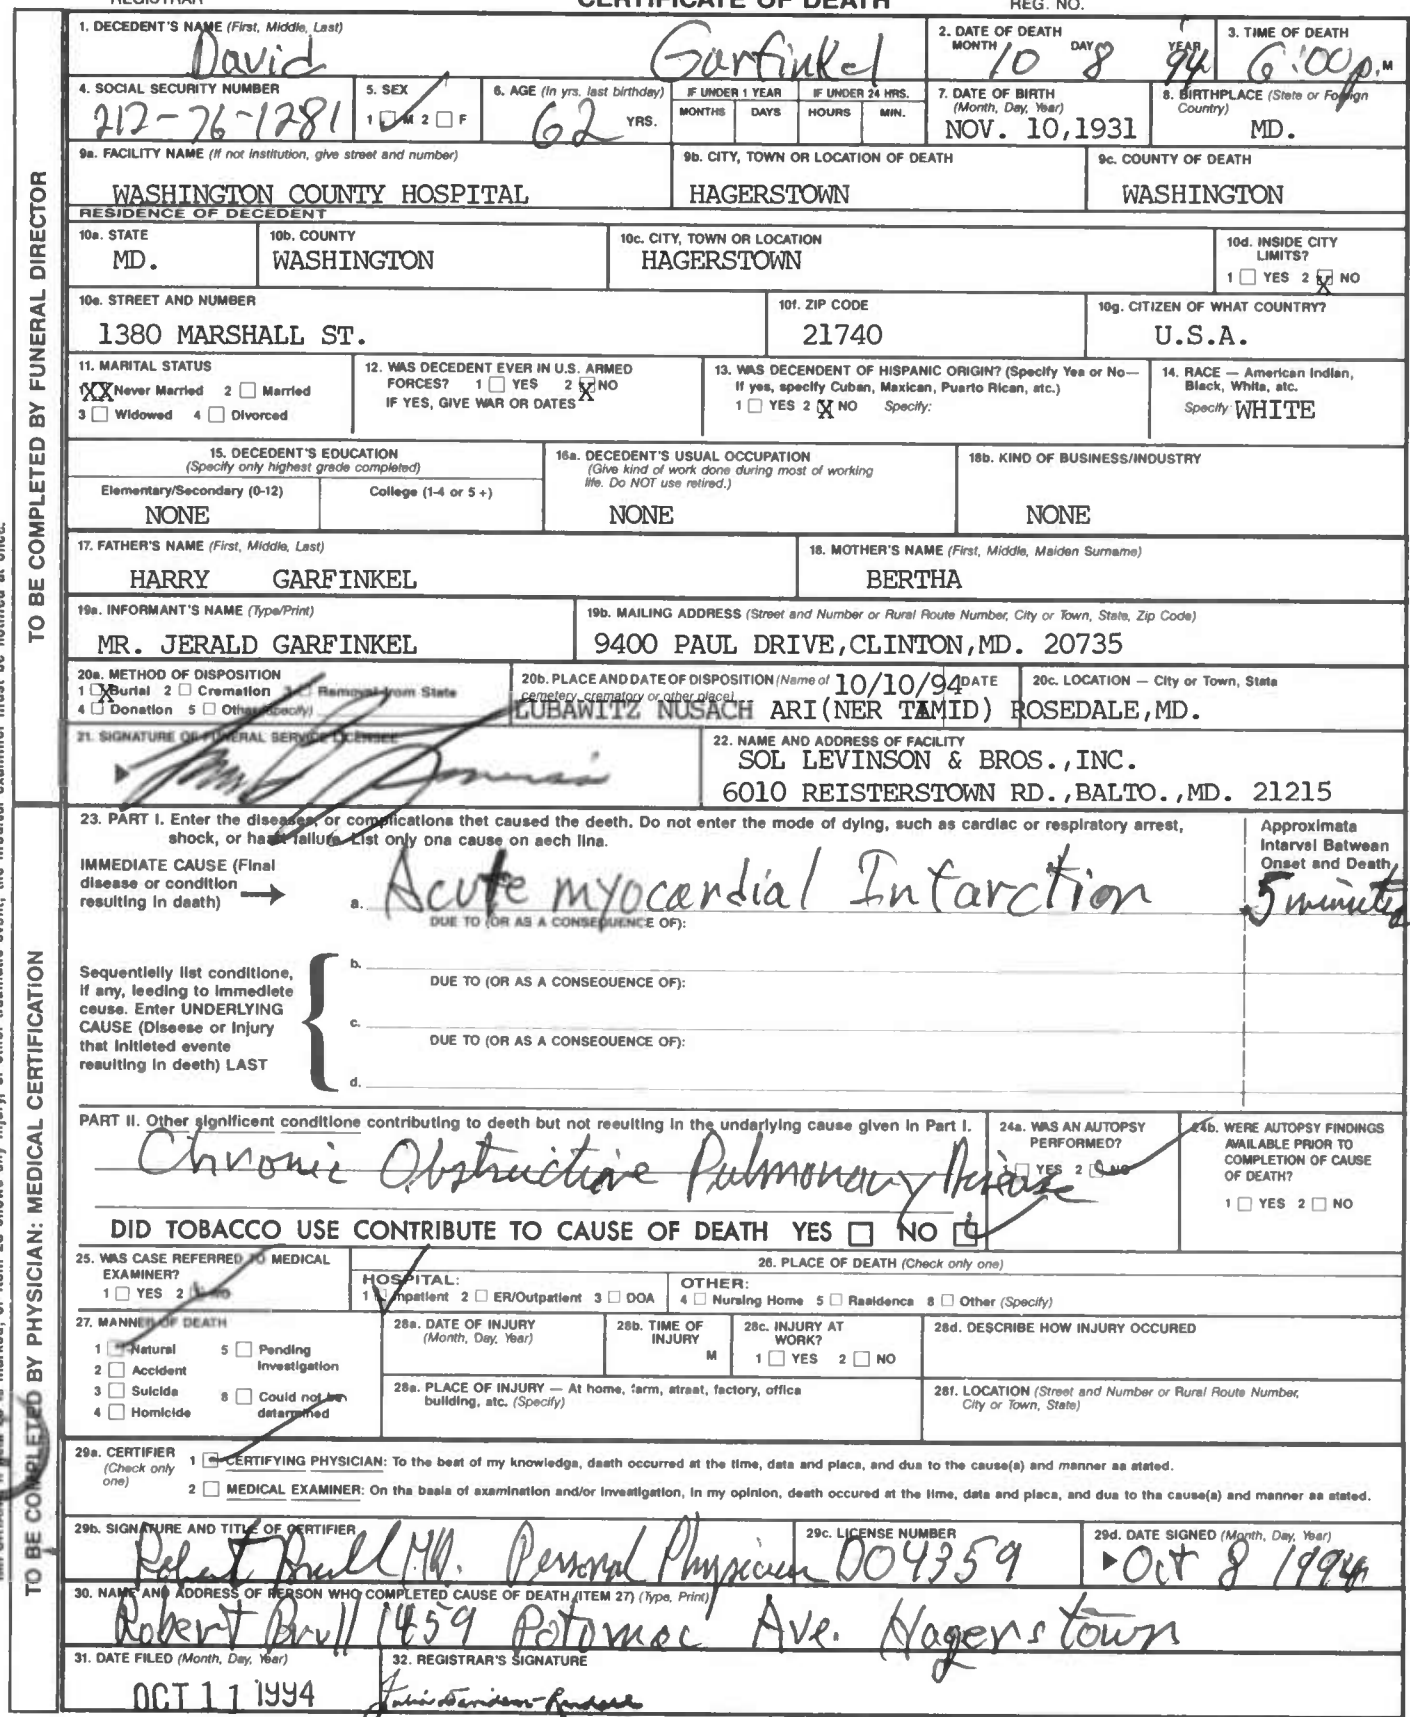 REGISTRAR CERTIFICATE OF DEATH REG. NO.
1. DECEDENT'S NAME (First, Middle, Last)
David Garfinkel
2. DATE OF DEATH
MONTH DAY YEAR
10 8 94
3. TIME OF DEATH
6:00 p.M
4. SOCIAL SECURITY NUMBER
212-76-1281
5. SEX
1 M 2 F
6. AGE (In yrs. last birthday)
62 YRS.
IF UNDER 1 YEAR
MONTHS DAYS
IF UNDER 24 HRS.
HOURS MIN.
7. DATE OF BIRTH
(Month, Day, Year)
NOV. 10,1931
8. BIRTHPLACE (State or Foreign
Country)
MD.
9a. FACILITY NAME (If not institution, give street and number)
WASHINGTON COUNTY HOSPITAL
9b. CITY, TOWN OR LOCATION OF DEATH
HAGERSTOWN
9c. COUNTY OF DEATH
WASHINGTON
RESIDENCE OF DECEDENT
10a. STATE
MD.
10b. COUNTY
WASHINGTON
10c. CITY, TOWN OR LOCATION
HAGERSTOWN
10d. INSIDE CITY
LIMITS?
1 YES 2 X NO
10e. STREET AND NUMBER
1380 MARSHALL ST.
10f. ZIP CODE
21740
10g. CITIZEN OF WHAT COUNTRY?
U.S.A.
11. MARITAL STATUS
1 XX Never Married 2 Married
3 Widowed 4 Divorced
12. WAS DECEDENT EVER IN U.S. ARMED
FORCES? 1 YES 2 X NO
IF YES, GIVE WAR OR DATES
13. WAS DECENDENT OF HISPANIC ORIGIN? (Specify Yes or No—
If yes, specify Cuban, Maxican, Puarto Rican, atc.)
1 YES 2 X NO Specify:
14. RACE — American Indian,
Black, Whita, atc.
Specify: WHITE
15. DECEDENT'S EDUCATION
(Specify only highest grade completed)
Elementary/Secondary (0-12) College (1-4 or 5 +)
NONE
16a. DECEDENT'S USUAL OCCUPATION
(Give kind of work done during most of working
life. Do NOT use retired.)
NONE
16b. KIND OF BUSINESS/INDUSTRY
NONE
17. FATHER'S NAME (First, Middle, Last)
HARRY GARFINKEL
18. MOTHER'S NAME (First, Middle, Maiden Surname)
BERTHA
19a. INFORMANT'S NAME (Type/Print)
MR. JERALD GARFINKEL
19b. MAILING ADDRESS (Street and Number or Rural Route Number, City or Town, State, Zip Code)
9400 PAUL DRIVE,CLINTON,MD. 20735
20a. METHOD OF DISPOSITION
1 X Burial 2 Cremation 3 Removal from State
4 Donation 5 Other (Specify)
20b. PLACE AND DATE OF DISPOSITION (Name of 10/10/94 DATE
cemetery, crematory or other place)
LUBAWITZ NUSACH ARI(NER TAMID)
20c. LOCATION — City or Town, Stata
ROSEDALE,MD.
21. SIGNATURE OF FUNERAL SERVICE LICENSEE
22. NAME AND ADDRESS OF FACILITY
SOL LEVINSON & BROS.,INC.
6010 REISTERSTOWN RD.,BALTO.,MD. 21215
23. PART I. Enter the diseases, or complications thet caused the deeth. Do not enter the mode of dying, such as cardiac or respiratory arrest,
shock, or heart failure. List only ona cause on aech lina.
Approximata
Intarvel Batwean
Onset and Death
IMMEDIATE CAUSE (Final
disease or condition
resulting in daath)
a. Acute myocardial Infarction
5 minutes
DUE TO (OR AS A CONSEQUENCE OF):
Sequentielly list conditione,
if any, leeding to immediete
ceuse. Enter UNDERLYING
CAUSE (Diseese or Injury
that Initieted evente
reaulting in deeth) LAST
b.
DUE TO (OR AS A CONSEOUENCE OF):
c.
DUE TO (OR AS A CONSEOUENCE OF):
d.
PART II. Other significent conditione contributing to deeth but not reeulting in the underlying cause given in Part I.
Chronic Obstructive Pulmonary Disease
DID TOBACCO USE CONTRIBUTE TO CAUSE OF DEATH YES NO
24a. WAS AN AUTOPSY
PERFORMED?
1 YES 2 NO
24b. WERE AUTOPSY FINDINGS
AVAILABLE PRIOR TO
COMPLETION OF CAUSE
OF DEATH?
1 YES 2 NO
25. WAS CASE REFERRED TO MEDICAL
EXAMINER?
1 YES 2 NO
26. PLACE OF DEATH (Check only one)
HOSPITAL:
1 Inpatient 2 ER/Outpatient 3 DOA
OTHER:
4 Nursing Home 5 Rasidenca 8 Other (Specify)
27. MANNER OF DEATH
1 Natural 5 Pending
Investigation
2 Accident
3 Suicida 8 Could not be
determined
4 Homicide
28a. DATE OF INJURY
(Month, Day, Year)
28b. TIME OF
INJURY
M
28c. INJURY AT
WORK?
1 YES 2 NO
28d. DESCRIBE HOW INJURY OCCURED
28a. PLACE OF INJURY — At home, farm, atraat, factory, offica
building, atc. (Specify)
28f. LOCATION (Street and Number or Rural Route Number,
City or Town, State)
29a. CERTIFIER
(Check only
one)
1 CERTIFYING PHYSICIAN: To the beat of my knowledga, daath occurred at the tima, data and placa, and dua to the cause(a) and manner aa atated.
2 MEDICAL EXAMINER: On the baaia of axamination and/or Invaatigation, in my opinion, death occured at the tima, data and placa, and dua to the cause(a) and manner aa atated.
29b. SIGNATURE AND TITLE OF CERTIFIER
Robert Brull M.D. Personal Physician
29c. LICENSE NUMBER
D04359
29d. DATE SIGNED (Month, Day, Year)
Oct 8 1994
30. NAME AND ADDRESS OF PERSON WHO COMPLETED CAUSE OF DEATH (ITEM 27) (Type, Print)
Robert Brull 1459 Potomac Ave. Hagerstown
31. DATE FILED (Month, Day, Year)
OCT 11 1994
32. REGISTRAR'S SIGNATURE
TO BE COMPLETED BY FUNERAL DIRECTOR
TO BE COMPLETED BY PHYSICIAN: MEDICAL CERTIFICATION